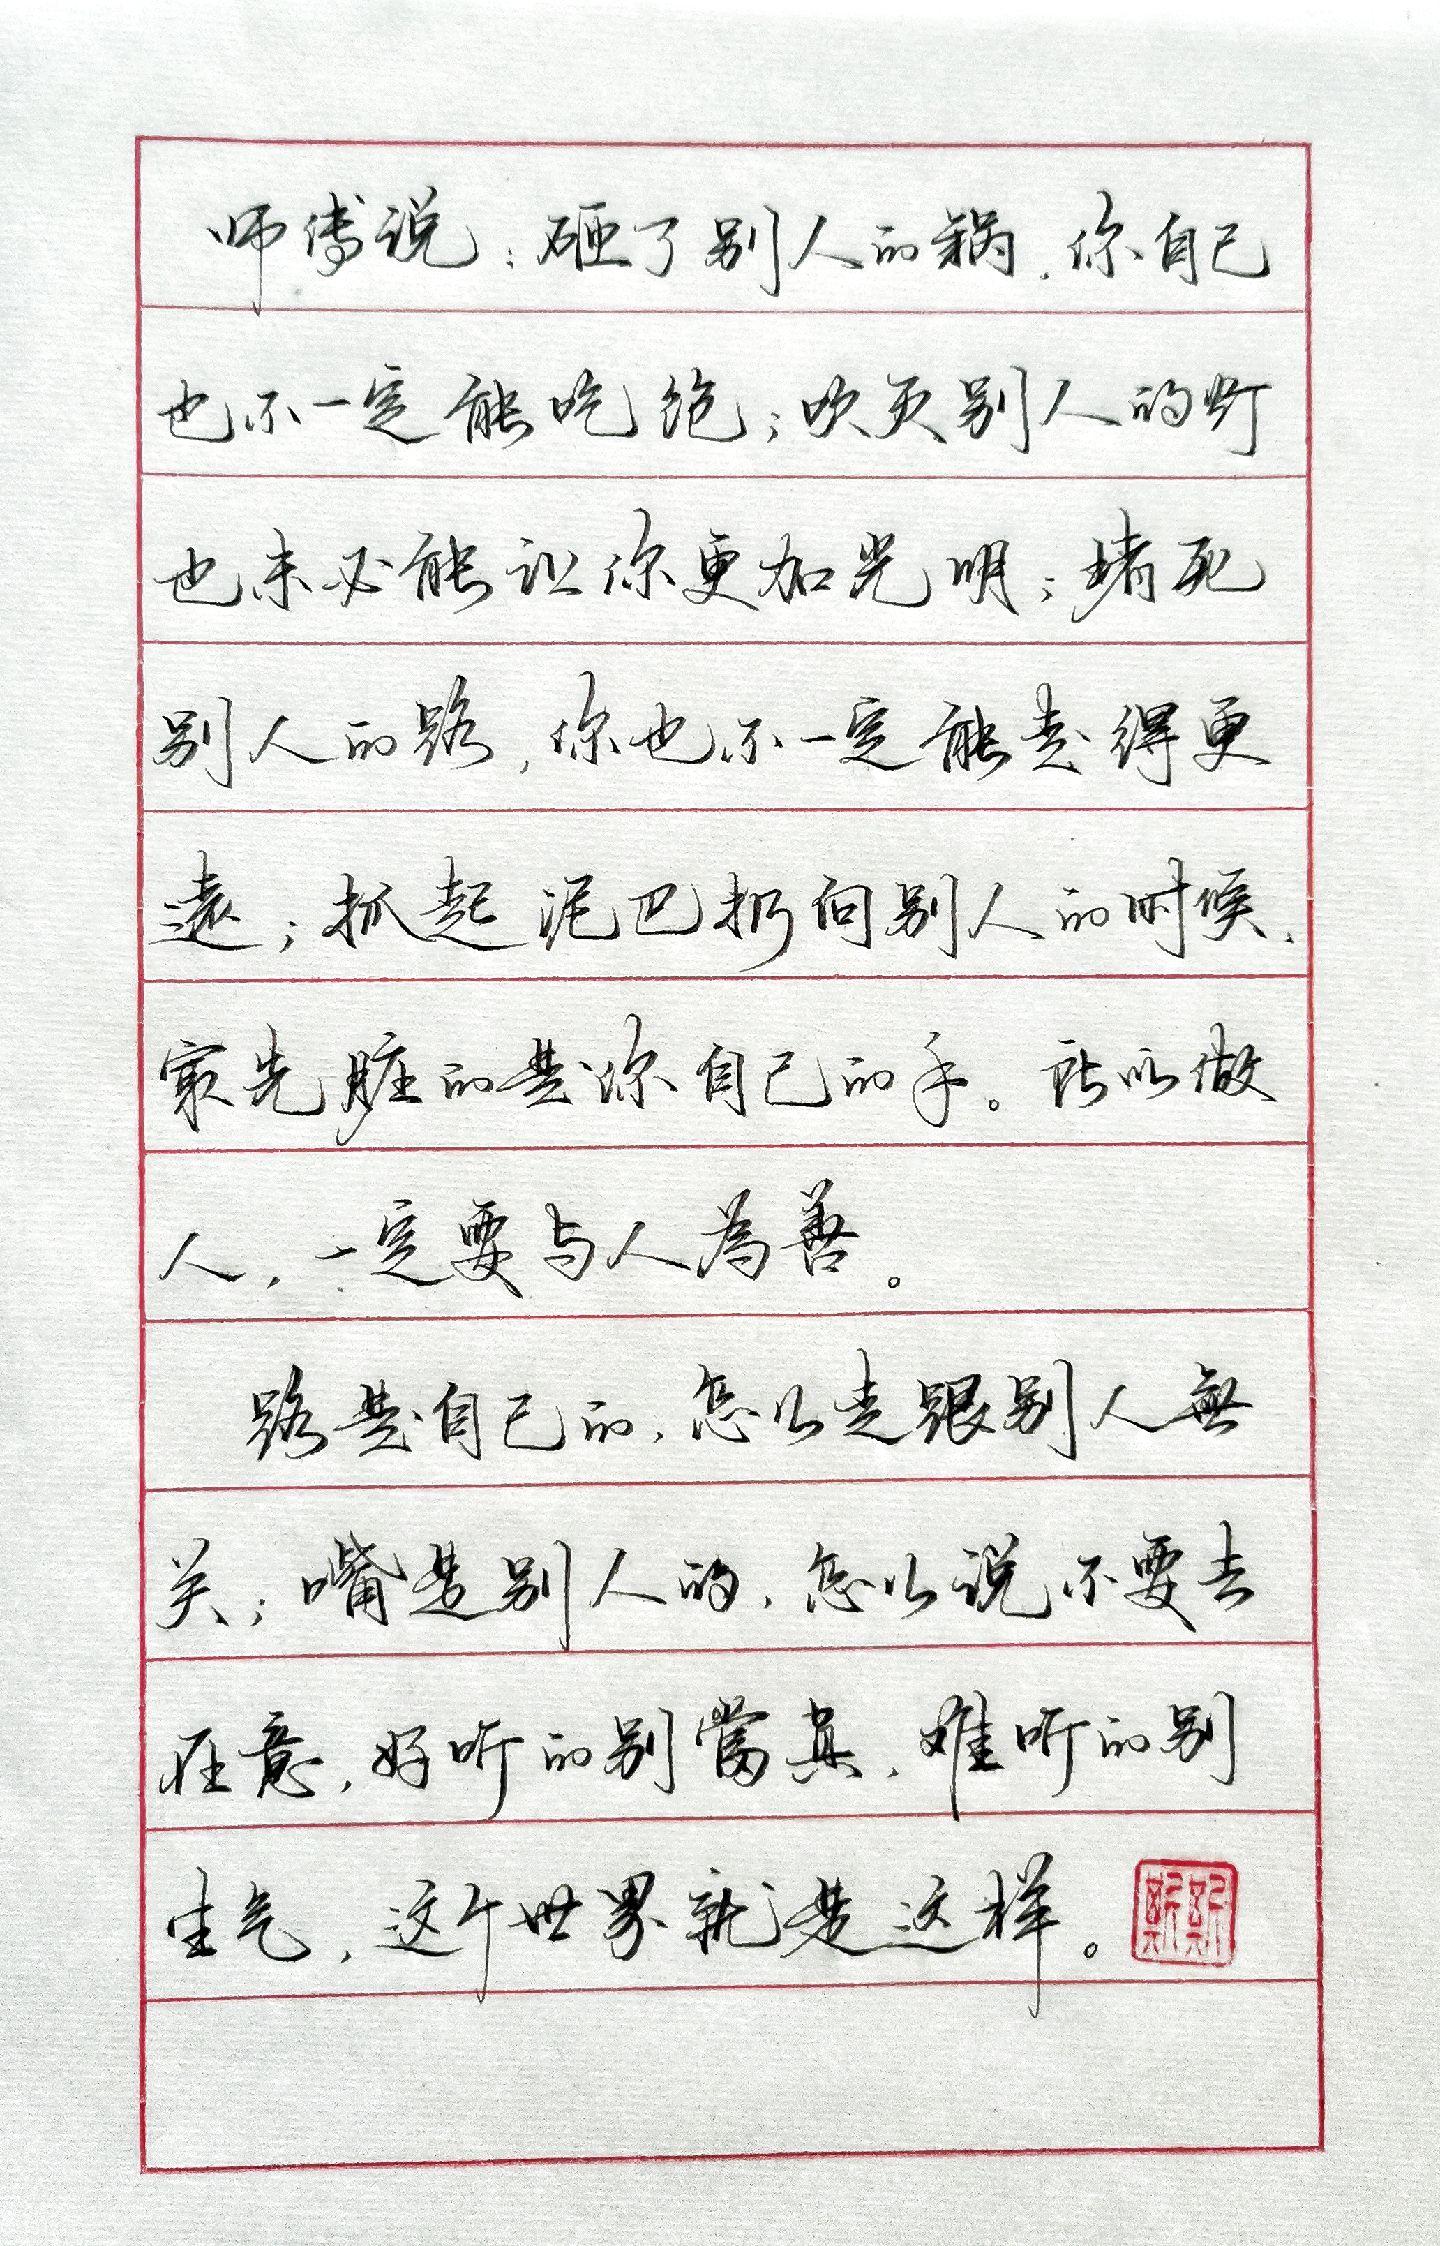 师傅说：砸了别人的锅，你自己
也不一定能吃饱；吹灭别人的灯
也未必能让你更加光明；堵死
别人的路，你也不一定能走得更
遠；抓起泥巴扔向别人的时候，
最先脏的是你自己的手。所以做
人，一定要与人为善。
路是自己的，怎么走跟别人無
关；嘴是别人的，怎么说不要去
在意，好听的别當真，难听的别
生气，这个世界就是这样。